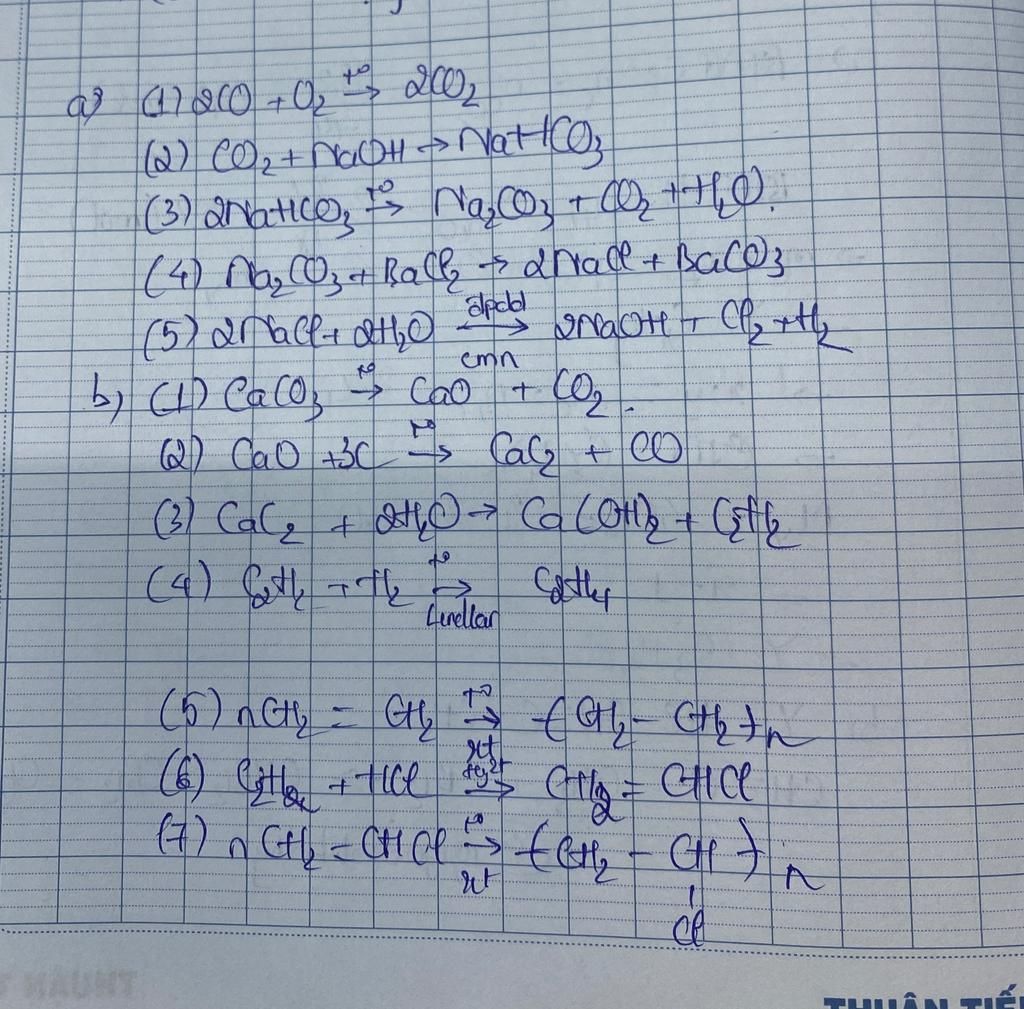 a) (1) 2CO + O₂ t°→ 2CO₂
(2) CO₂ + NaOH → NaHCO₃
(3) 2NaHCO₃ t°→ Na₂CO₃ + CO₂ + H₂O.
(4) Na₂CO₃ + BaCl₂ → 2NaCl + BaCO₃
(5) 2NaCl + 2H₂O đpdd→ cmn 2NaOH + Cl₂ + H₂
b) (1) CaCO₃ t°→ CaO + CO₂.
(2) CaO + 3C t°→ CaC₂ + CO
(3) CaC₂ + 2H₂O → Ca(OH)₂ + C₂H₂
(4) C₂H₂ + H₂ t°→ C₂H₄
(5) nCH₂ = CH₂ t°→ xt -(CH₂ - CH₂)-n
(6) C₂H₂ + HCl Hg²⁺→ CH₂ = CHCl
(7) nCH₂ = CHCl t°→ xt -(CH₂ - CH)-n
Cl
THUẬN TIẾ